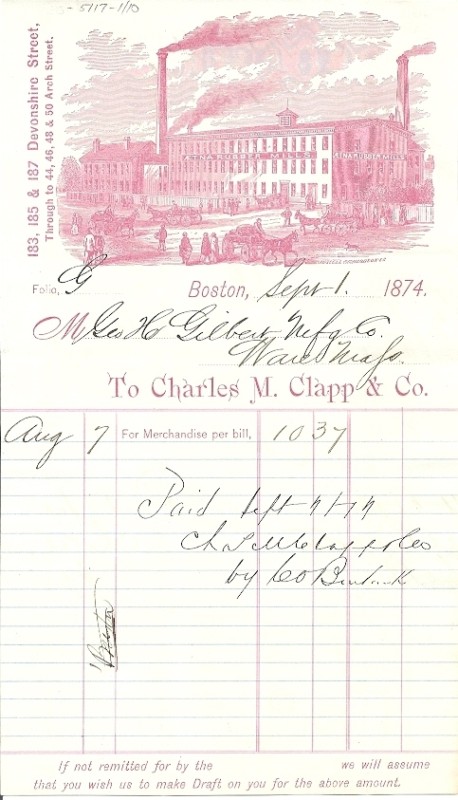 5117-1/10
183, 185 & 187 Devonshire Street,
Through to 44, 46, 48 & 50 Arch Street.
ÆTNA RUBBER MILLS
ÆTNA RUBBER MILLS
Folio, G
Boston, Sept 1. 1874.
M Geo H Gilbert Mfg Co.
Ware Mass.
To Charles M. Clapp & Co.
Aug 7 For Merchandise per bill, 10 37
Paid Sept
Chs M Clapp & Co
by
If not remitted for by the we will assume
that you wish us to make Draft on you for the above amount.